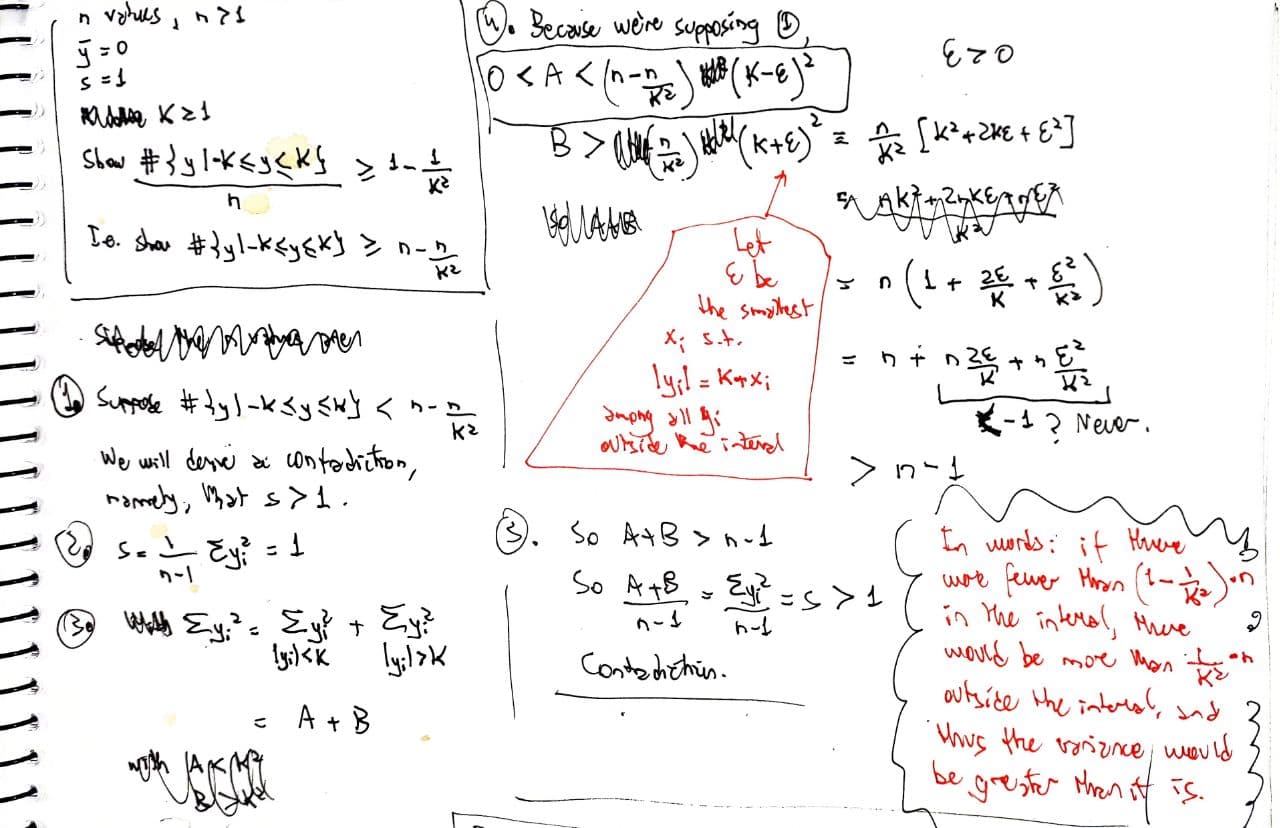 n values, n > 1
ȳ = 0
s = 1
K ≥ 1
Show #{y|-K≤y≤K} / n ≥ 1 - 1/K²
I.e. show #{y|-K≤y≤K} ≥ n - n/K²
1. Suppose #{y|-K≤y≤K} < n - n/K²
We will derive a contradiction,
namely, that s > 1.
2. s = 1/(n-1) Σyᵢ² = 1
3. Σyᵢ² = Σyᵢ² + Σyᵢ²
|yᵢ|<K |yᵢ|>K
= A + B
with
4. Because we're supposing ①,
0 < A < (n - n/K²) (K-ε)²
ε > 0
B > (n/K²) (K+ε)² = n/K² [K²+2Kε+ε²]
= n (1 + 2ε/K + ε²/K²)
= n + n 2ε/K + n ε²/K²
-1? Never.
> n-1
Let
ε be
the smallest
xᵢ s.t.
|yᵢ| = K+xᵢ
among all yᵢ
outside the interval
5. So A+B > n-1
So (A+B)/(n-1) = Σyᵢ²/(n-1) = s > 1
Contradiction.
In words: if there
were fewer than (1 - 1/K²)·n
in the interval, there
would be more than 1/K²·n
outside the interval, and
thus the variance would
be greater than it is.